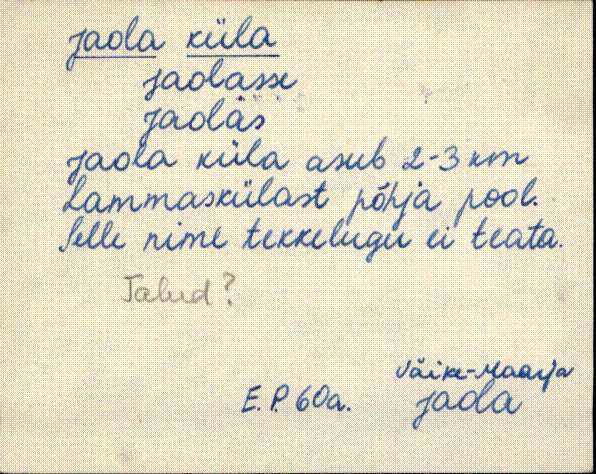 Jaola küla
Jaolasse
Jaolas
Jaola küla asub 2-3 km
Lammaskülast põhja pool.
Selle nime tekkelugu ei teata.
Talud?
Väike-Maarja
E.P. 60a. Jaola